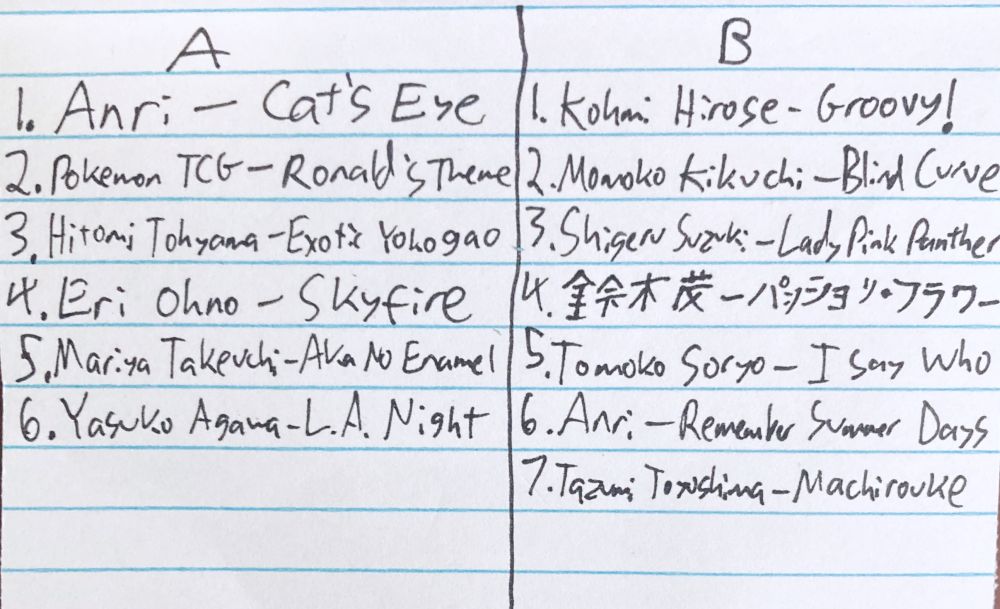 A
1. Anri – Cat's Eye
2. Pokemon TCG – Ronald's Theme
3. Hitomi Tohyama – Exotic Yokogao
4. Eri Ohno – Skyfire
5. Mariya Takeuchi – Aka No Enamel
6. Yasuko Agawa – L.A. Night
B
1. Kohmi Hirose – Groovy!
2. Momoko Kikuchi – Blind Curve
3. Shigeru Suzuki – Lady Pink Panther
4. 鈴木茂 – パッション・フラワー
5. Tomoko Soryo – I Say Who
6. Anri – Remember Summer Days
7. Tazumi Toyoshima – Machirouke